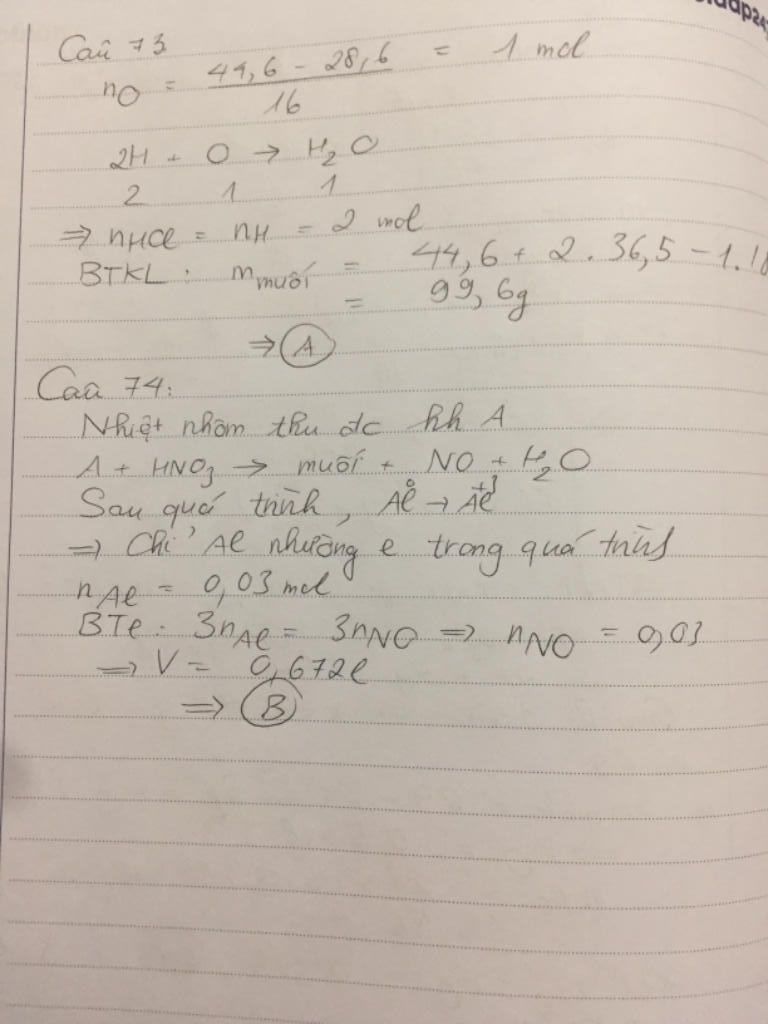 Câu 73
nO = 44,6 - 28,6 / 16 = 1 mol
2H + O → H2O
2 1 1
⇒ nHCl = nH = 2 mol
BTKL: mmuối = 44,6 + 2.36,5 - 1.18
= 99,6g
⇒ A
Câu 74:
Nhiệt nhôm thu đc hh A
A + HNO3 → muối + NO + H2O
Sau quá trình, Al⁰ → Al⁺³
⇒ Chỉ Al nhường e trong quá trình
nAl = 0,03 mol
BTe: 3nAl = 3nNO ⇒ nNO = 0,03
⇒ V = 0,672l
⇒ B